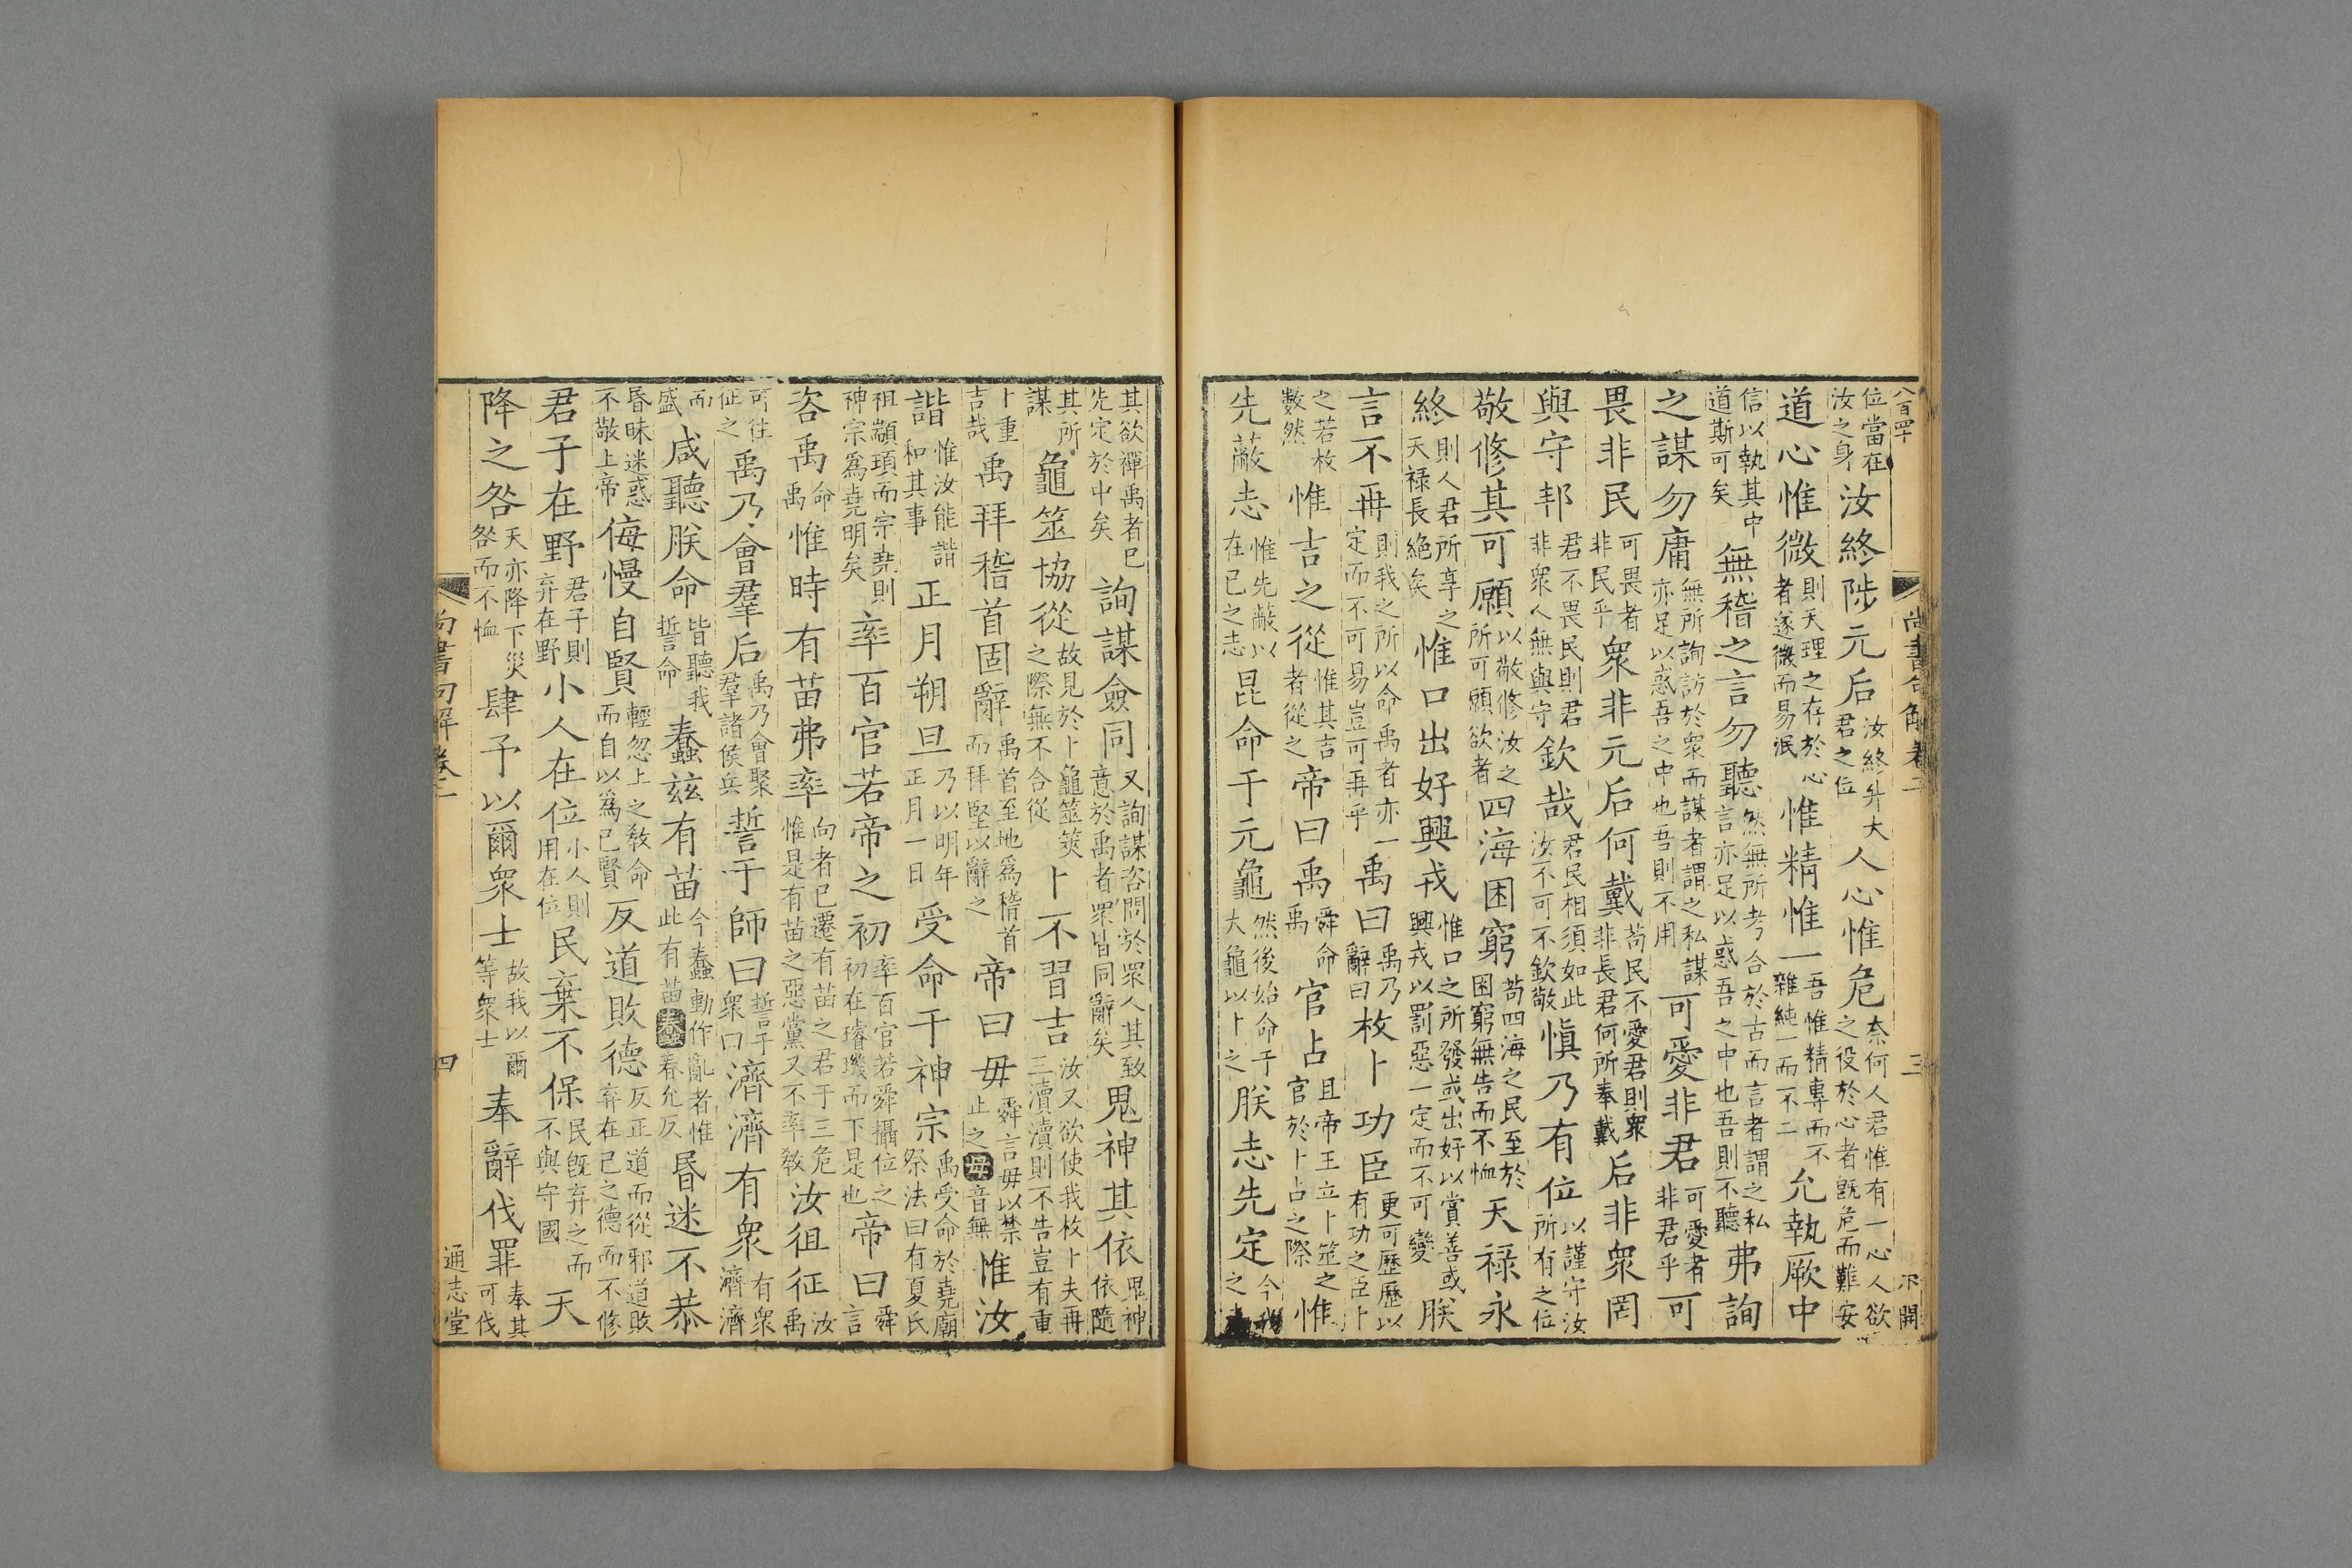 八百四十
尚書句解卷二
三
不開
位當在汝之身汝終陟元后汝終升大君之位人心惟危奈何人君惟有一心人欲之役於心者旣危而難安
道心惟微則天理之存於心者遂微而易泯惟精惟一吾惟精專而不雜純一而不二允執厥中
信以執其中道斯可矣無稽之言勿聽然無所考合於古而言者謂之私言亦足以惑吾之中也吾則不聽弗詢
之謀勿庸無所詢訪於衆而謀者謂之私謀亦足以惑吾之中也吾則不用可愛非君可愛者非君乎可
畏非民可畏者非民乎衆非元后何戴苟民不愛君則衆非長君何所奉戴后非衆罔
與守邦君不畏民則君非衆人無與守欽哉君民相須如此汝不可不欽敬慎乃有位以謹守汝所有之位
敬修其可願以敬修汝之所可願欲者四海困窮苟四海之民至於困窮無告而不恤天祿永
終則人君所享之天祿長絕矣惟口出好興戎惟口之所發或出好以賞善或興戎以罰惡一定而不可變朕
言不再則我之所以命禹者亦一定而不可易豈可再乎禹曰禹乃辭曰枚卜功臣更可歷歷以有功之臣卜
之若枚數然惟吉之從惟其吉者從之帝曰禹舜命禹官占且帝王立卜筮之官於卜占之際惟
先蔽志惟先蔽以在已之志昆命于元龜然後始命于大龜以卜之朕志先定今我之
其欲禪禹者已先定於中矣詢謀僉同又詢謀咨問於衆人其致意於禹者衆皆同辭矣鬼神其依鬼神依隨
其所謀龜筮協從故見於卜龜筮筴之際無不合從卜不習吉汝又欲使我枚卜夫再三瀆瀆則不告豈有重
卜重吉哉禹拜稽首固辭禹首至地爲稽首而拜堅以辭之帝曰毋舜言毋以禁止之毋音無惟汝
諧惟汝能諧和其事正月朔旦乃以明年正月一日受命于神宗禹受命於堯廟祭法曰有夏氏
祖顓頊而宗堯則神宗爲堯明矣率百官若帝之初率百官若舜攝位之初在璿璣而下是也帝曰舜言
咨禹命禹惟時有苗弗率向者已遷有苗之君于三危惟是有苗之惡黨又不率敎汝徂征汝禹
可往征之禹乃會羣后禹乃會聚羣諸侯兵誓于師曰誓于衆曰濟濟有衆有衆濟濟
而盛咸聽朕命皆聽我誓命蠢茲有苗今蠢動作亂者惟此有苗蠢春允反昏迷不恭
昏昧迷惑不敬上帝侮慢自賢輕忽上之敎命而自以爲已賢反道敗德反正道而從邪道敗弃在已之德而不修
君子在野君子則弃在野小人在位小人則用在位民棄不保民旣弃之而不與守國天
降之咎天亦降下災咎而不恤肆予以爾衆士故我以爾等衆士奉辭伐罪奉其可伐
尚書句解卷二
四
通志堂